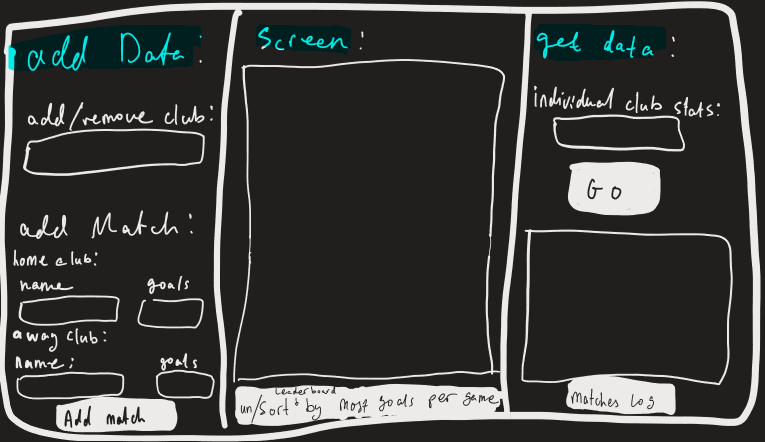 add Data:
add/remove club:
add Match:
home club:
name goals
away club:
name: goals
Add match
Screen:
Leaderboard
un/sort by most goals per game
get data:
individual club stats:
GO
Matches Log